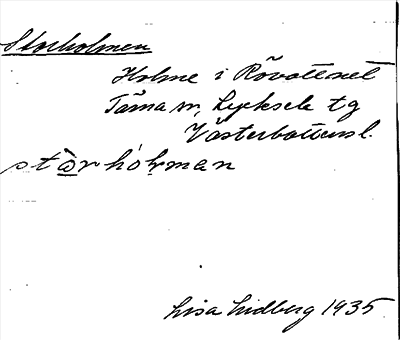 Storholmen
Holme i Rövattnet
Tärna sn, Lycksele tg
Västerbottens l.
stòrhólman
Lisa Lidberg 1935